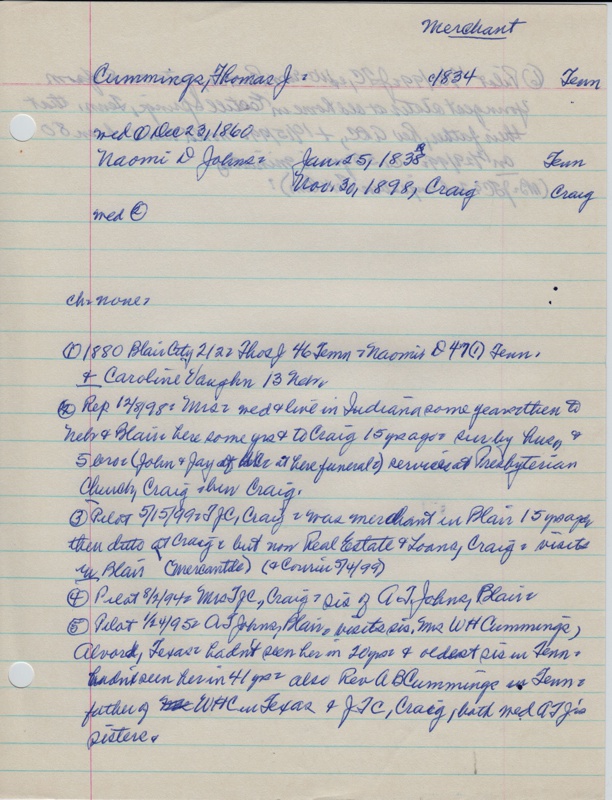 Merchant
Cummings, Thomas J = c1834 Tenn
med ① Dec 23, 1860
Naomi D Johns = Jan. 25, 1838 Tenn
Nov. 30, 1898, Craig Craig
med ②
ch = none =
① 1880 Blair City 212 = Thos J 46 Tenn = Naomi D 47 (1) Tenn.
& Caroline Vaughn 13 Nebr
② Rep 12/8/98 = Mrs = med & live in Indiana some years = then to
Nebr & Blair = here some yrs & to Craig 15 yrs ago = sur by husb &
5 bros = (John & Jay at here funeral =) services at Presbyterian
Church, Craig = bur Craig.
③ Pilot 5/15/99 = TJC, Craig = was merchant in Blair 15 yrs ago,
then ditto at Craig = but now Real Estate & Loans, Craig = visits
in Blair (Mercantile) (& Courier 5/4/99)
④ Pilot 8/2/94 = Mrs TJC, Craig = sis of A T Johns, Blair =
⑤ Pilot 1/24/95 = A T Johns, Blair = visits sis. Mrs WH Cummings,
Alvord, Texas = hadn't seen her in 20 yrs & oldest sis in Tenn =
hadn't seen her in 41 yrs = also Rev A B Cummings in Tenn =
father of WHC in Texas & JTC, Craig, both med ATJ's
sisters.